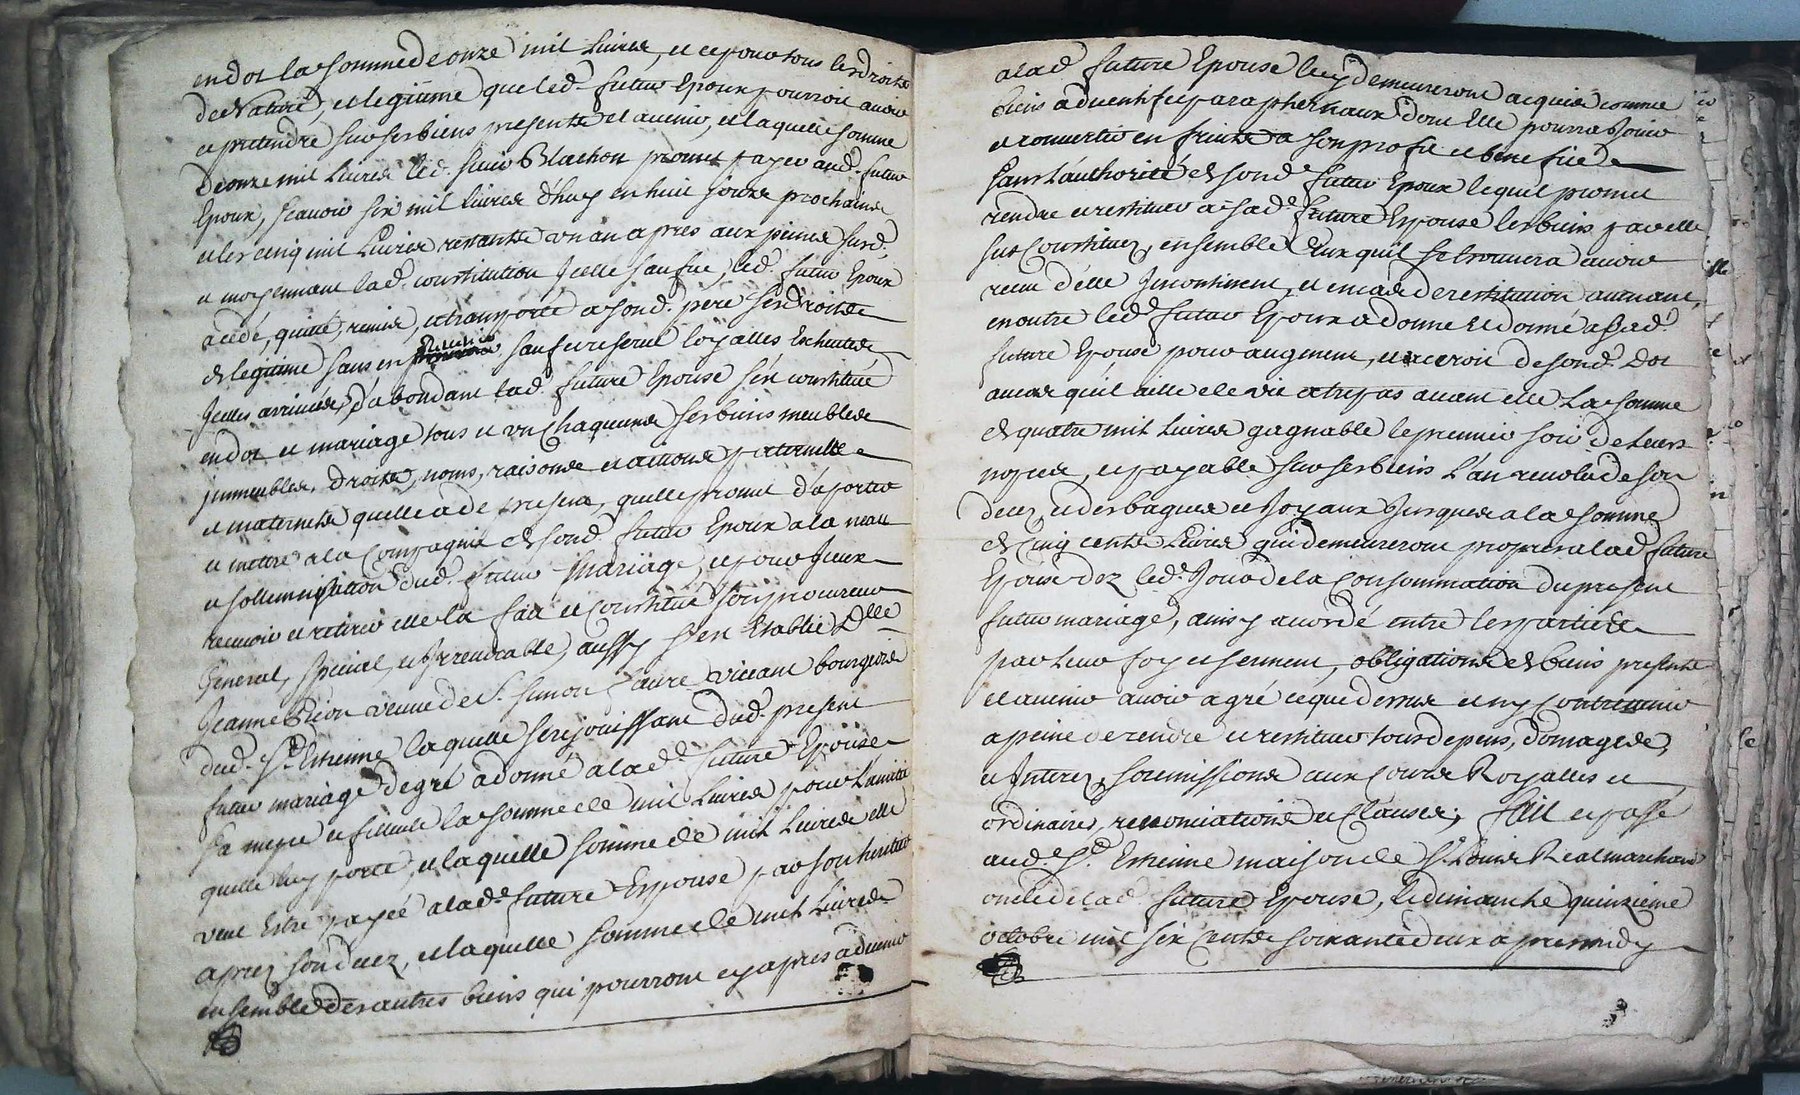 endot la somme de onze mil Livres, et ce pour tous les droits
de Nature, et legitime que led. futur Epoux pourroit avoir
et pretendre sur ses biens presents et avenir, et laquelle somme
de onze mil Livres led. sieur Blachon promet payer aud. futur
Epoux, scavoir six mil livres d'huy en huit jours prochains
et les cinq mil Livres restants un an apres aux peines susd.
et moyennant lad. constitution Icelle sauf ce, led. futur Epoux
a cedé, quitté, remis, et transporté a sond. pere ses droits
de legitime sans en sauf et reservé loyalles Escheutes
Icelles arrivées, D'abondant lad. future Epouse s'est constitué
en dot et mariage tous et un chaquuns ses biens meubles
jmmeubles, droits, noms, raisons et actions paternelle
et maternels quelle a de present, quelle promet d'aporter
et mettre a la Compagnie de sond. futur Epoux a la
et sollemnisation dud. futur Mariage, et pour Iceux
recevoir et retirer elle la fait et constitué son procureur
General, special, et Irrevocable, aussy s'est Establie Dlle
Jeanne veuve de Sr. Simon Faure vivant bourgeois
dud. St. Estienne laquelle se rejouissant dud. present
futur mariage de gré a donné a lad. future Epouse
sa niepce et fillieule la somme de mil Livres pour L'amitié
quelle luy porte, et laquelle somme de mil Livres elle
veut Estre payée a lad. future Espouse par son heritier
apres son decez, et laquelle somme de mil Livres
ensemble des autres biens qui pourront cy apres advenir
a lad. future Epouse luy demeureront acquis comme
biens adventifs et paraphernaux dont Elle pourra Jouir
et convertir en fruits a son profit et benefice
sans l'authorité de sond. futur Epoux lequel promet
rendre et restituer a sad. future Espouse les biens par elle
sus Constituez, ensemble Ceux quil se trouvera avoir
receu d'elle Incontinent, et en cas de restitution avenant,
en outre led. futur Epoux a donne et donné a sad.
future Epouse pour augment, et acroit de sond. Dot
au cas quil aille de vie a trepas avant elle La somme
de quatre mil Livres gagnable le premier soir de Leurs
nopces, et payable sur ses biens L'an revolu de son
decez, et des bagues et Joyaux Jusques a la somme
de Cinq cents Livres qui demeureront propres a lad. future
Epouse dez led. Jour de la Consommation du present
futur mariage, ainsy accordé entre les parties
par leur foy et serment, obligations de biens presents
et avenir avoir a gré ce que dessus et ny Contrevenir
a peine de rendre et restituer tous depens, domages,
et Interez, soumissions aux Cours Royalles et
ordinaires, renonciations et Clauses; fait et passé
aud. St. Estienne maison de Sr. Louis Real marchand
oncle de lad. future Epouse, le dimanche quinzieme
octobre mil six cents soixante deux apres midy